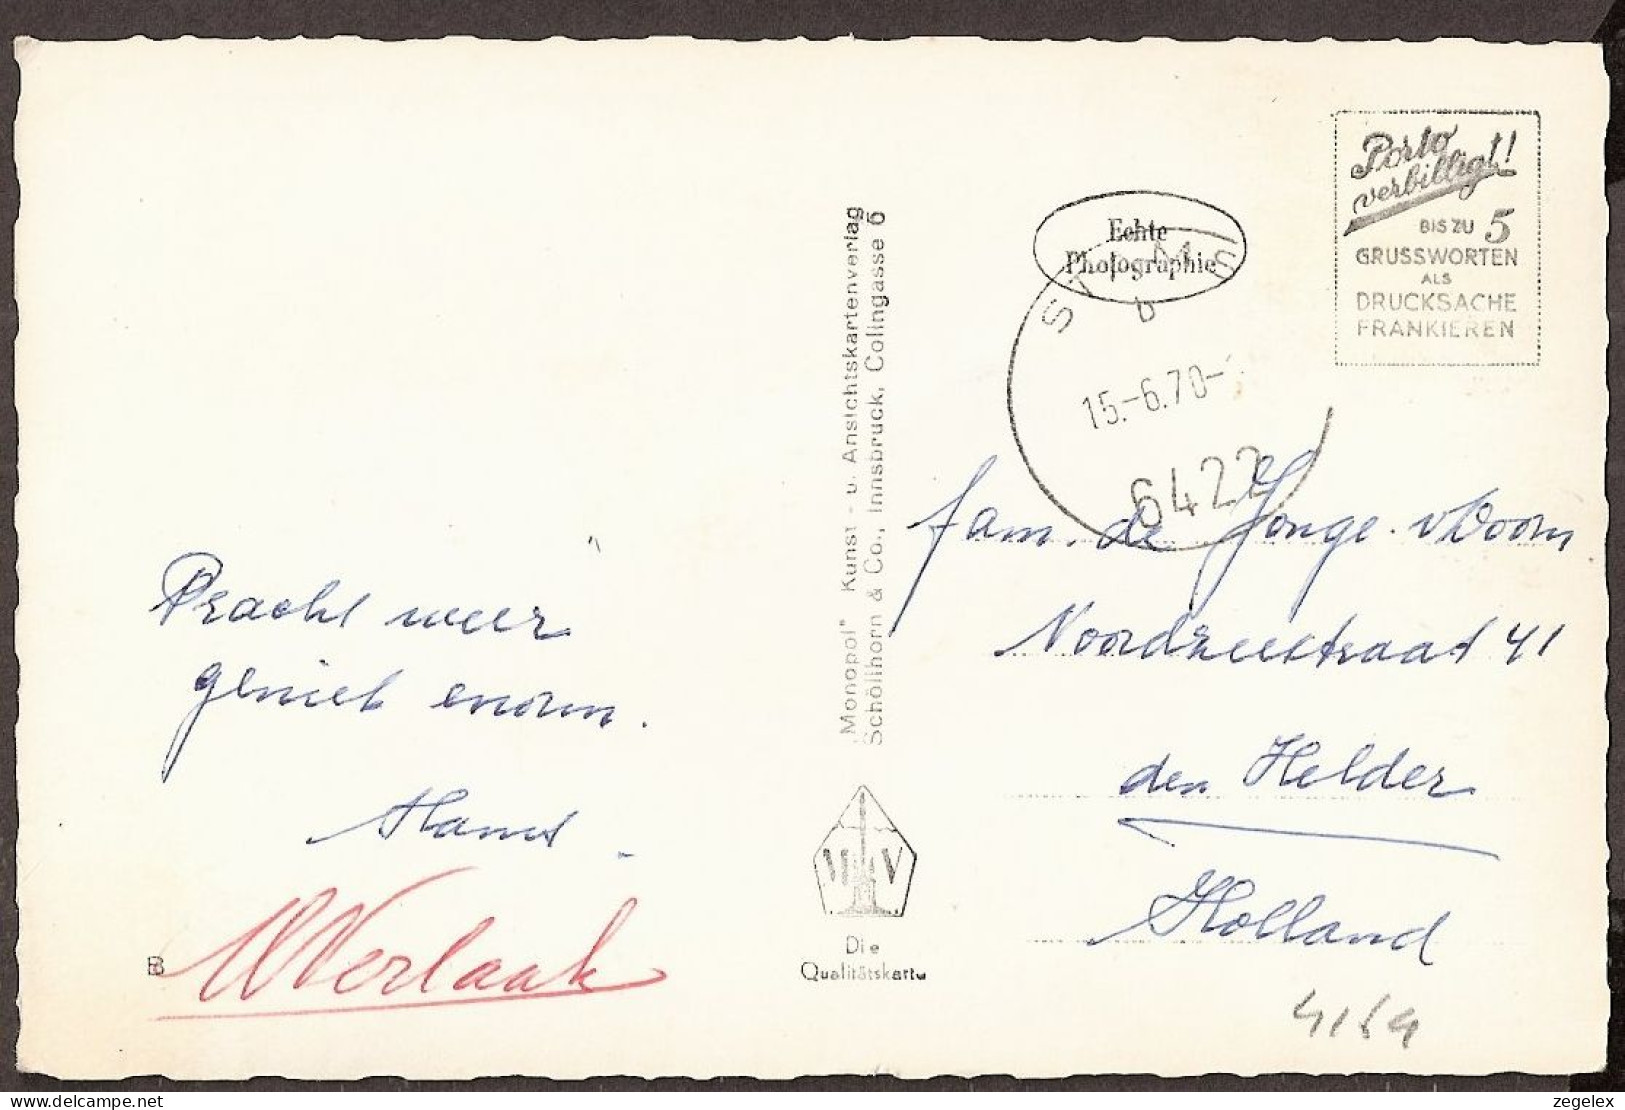 Pracht weer
geniet enorm.
WVerlaak
„Monopol" Kunst- u. Ansichtskartenverlag
Schöllhorn & Co., Innsbruck, Collingasse 5
Die
Qualitätskarte
Echte
Photographie
b
15.-6.70-
6422
Porto
verbilligt!
BIS ZU 5
GRUSSWORTEN
ALS
DRUCKSACHE
FRANKIEREN
fam. de Jonge. v Doorn
Noordzeestraat 41
den Helder
Holland
zegelex
delcampe.net